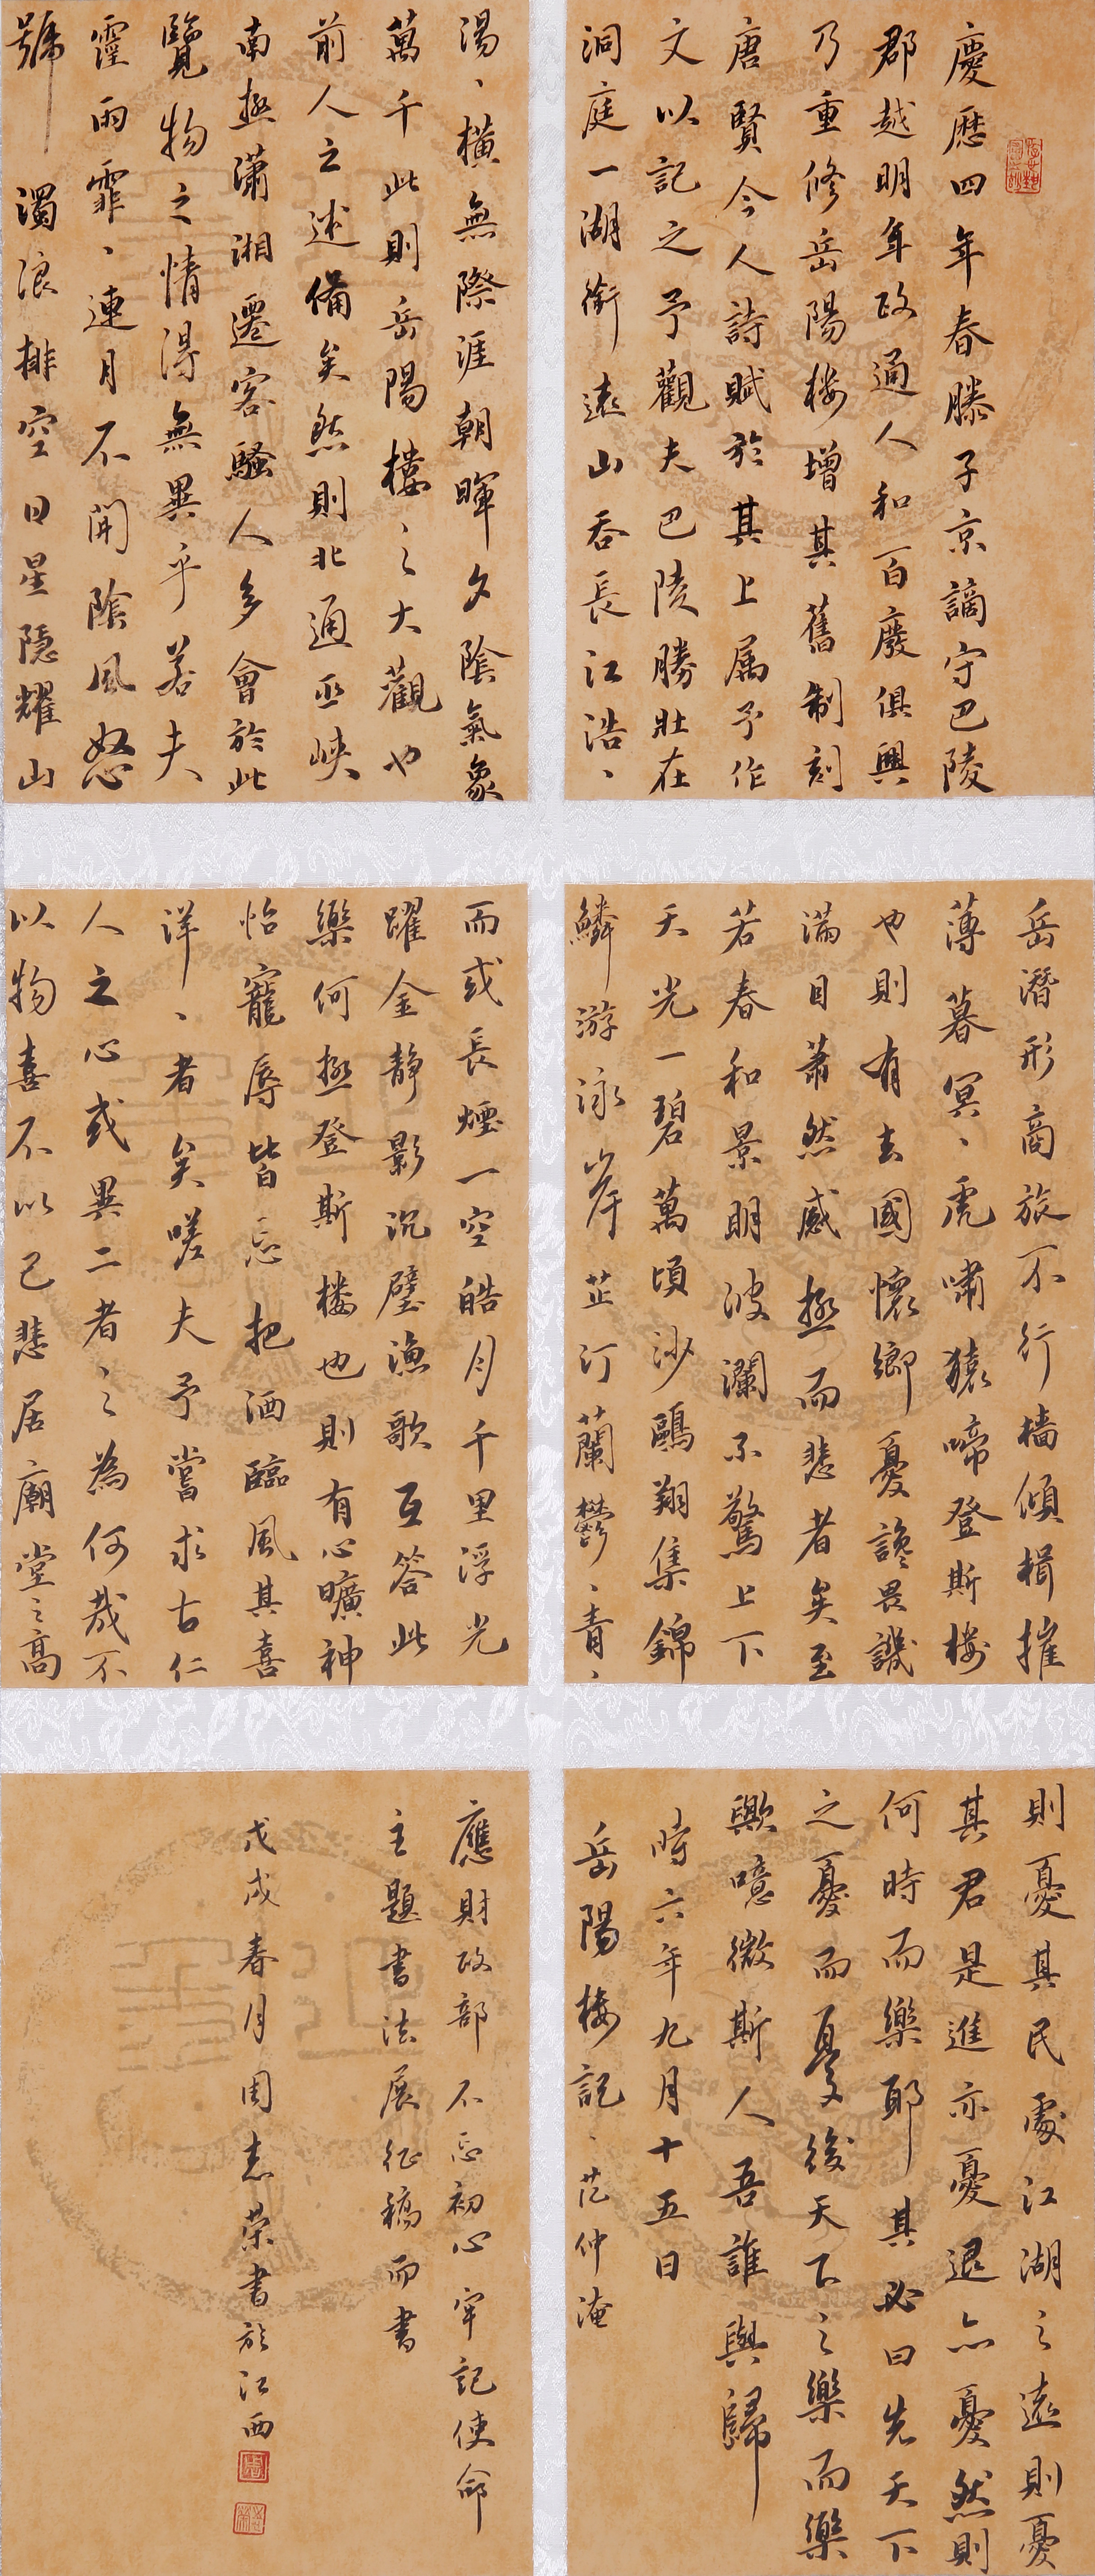 慶曆四年春滕子京謫守巴陵
郡越明年政通人和百廢俱興
乃重修岳陽楼增其舊制刻
唐賢今人詩賦於其上属予作
文以記之予觀夫巴陵勝壯在
洞庭一湖銜遠山吞長江浩、
湯、橫無際涯朝暉夕陰氣象
萬千此則岳陽樓之大觀也
前人之述備矣然則北通巫峽
南極瀟湘遷客騷人多會於此
覽物之情得無異乎若夫
霪雨霏、連月不開陰風怒
號濁浪排空日星隱耀山
岳潛形商旅不行檣傾楫摧
薄暮冥、虎嘯猿啼登斯楼
也則有去國懷鄉憂讒畏譏
滿目蕭然感極而悲者矣至
若春和景明波瀾不驚上下
天光一碧萬頃沙鷗翔集錦
鱗游泳岸芷汀蘭鬱、青、
而或長煙一空皓月千里浮光
躍金靜影沉璧漁歌互答此
樂何極登斯楼也則有心曠神
怡寵辱皆忘把酒臨風其喜
洋、者矣嗟夫予嘗求古仁
人之心或異二者之為何哉不
以物喜不以己悲居廟堂之高
則憂其民處江湖之遠則憂
其君是進亦憂退亦憂然則
何時而樂耶其必曰先天下
之憂而憂後天下之樂而樂
歟噫微斯人吾誰與歸
時六年九月十五日
岳陽楼記、范仲淹
應財政部不忘初心牢記使命
主題書法展征稿而書
戊戌春月周志荣書於江西